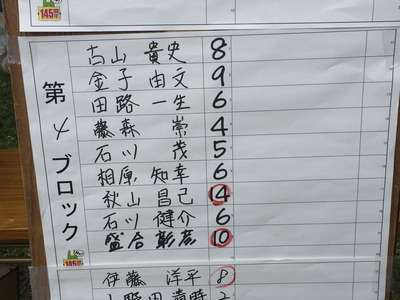 145
第4ブロック
古山 貴史 8
金子 由文 9
田路 一生 6
藤森 崇 4
石川 茂 5
相原 知幸 6
秋山 昌己 14
石川 健介 6
盛合 彰彦 10
145
伊藤 洋平 8